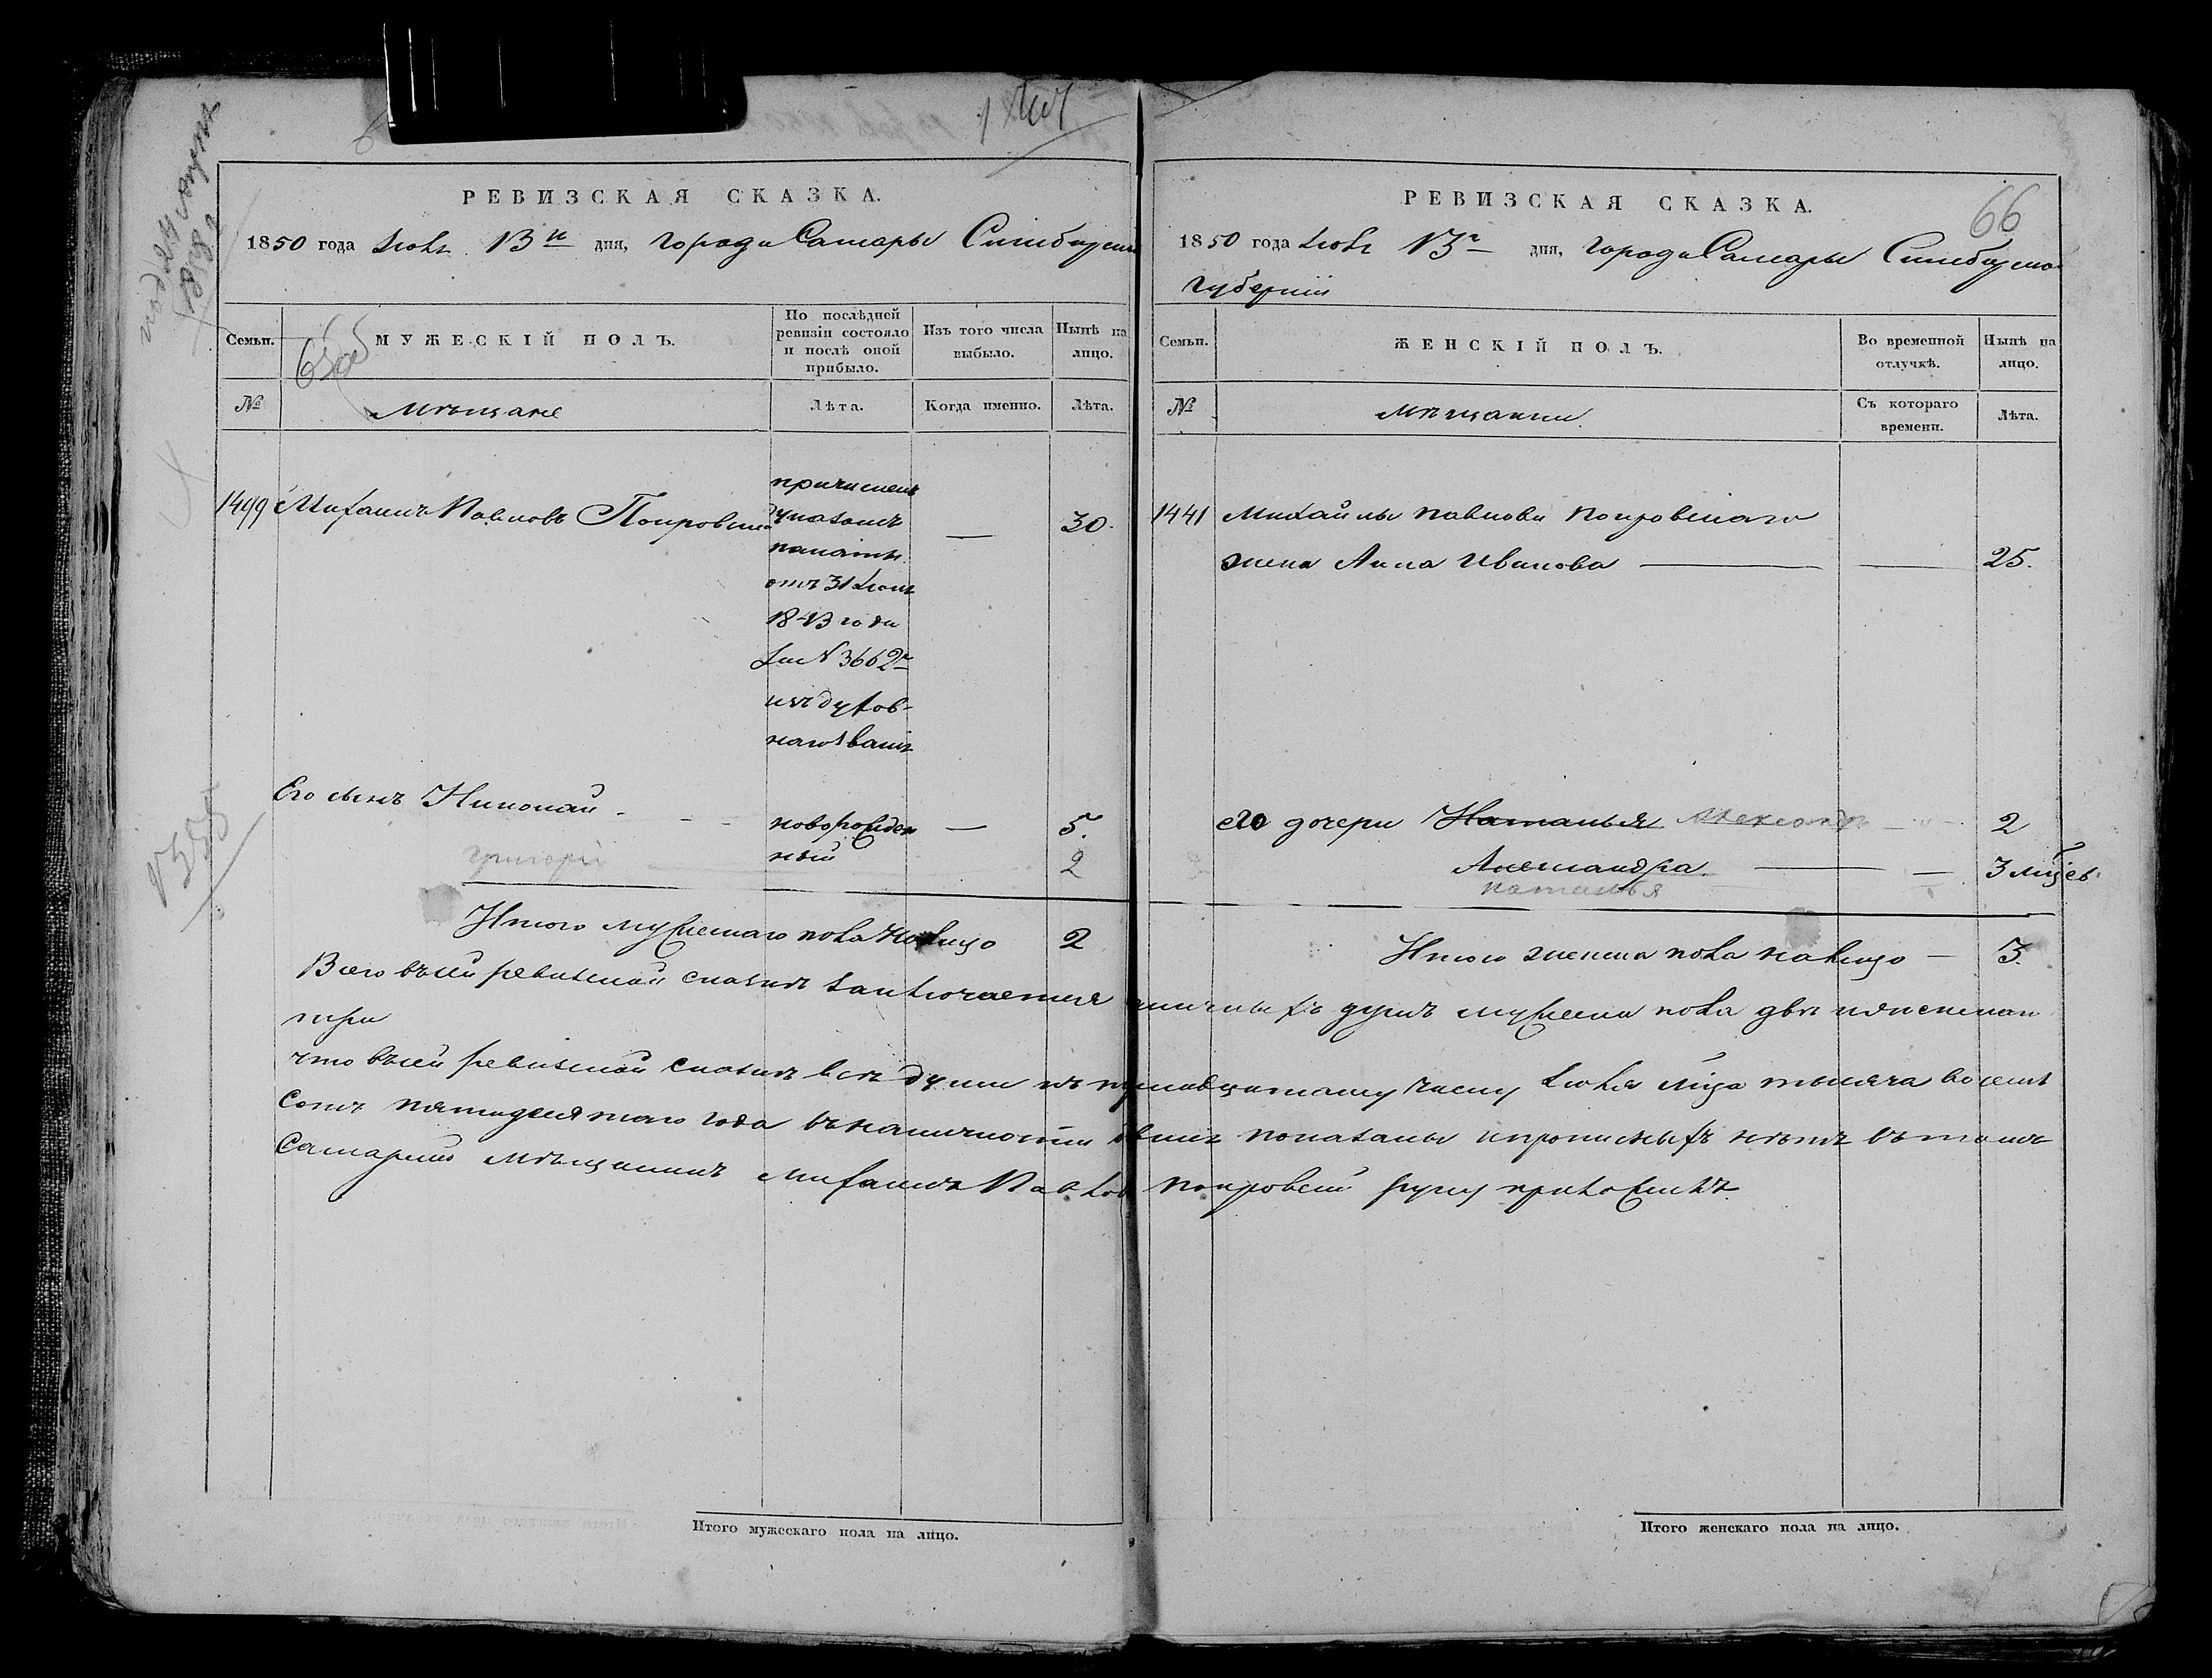 РЕВИЗСКАЯ СКАЗКА.
1850 года Іюля 13го дня, города Самары Симбирской
Семьи.
МУЖЕСКІЙ ПОЛЪ.
По послѣдней ревизіи состояло и послѣ оной прибыло.
Изъ того числа выбыло.
Нынѣ на лицо.
№
Мѣщане
Лѣта.
Когда именно.
Лѣта.
1499 Михаилъ Павловъ Покровскій
причисленъ
указомъ
палаты
отъ 31 Іюля
1843 года
за № 3662м
изъ духов-
наго званія
—
30.
Его сынъ Николай
новорожден
ный
—
5.
Григорій
2
Итого мужескаго пола налицо 2
РЕВИЗСКАЯ СКАЗКА.
66
1850 года Іюля 13го дня, города Самары Симбирской
губерніи
Семьи.
ЖЕНСКІЙ ПОЛЪ.
Во временной отлучкѣ.
Нынѣ на лицо.
№
Мѣщанки.
Съ котораго времени.
Лѣта.
1441 Михайлы Павлова Покровскаго
жена Анна Иванова — — 25.
его дочери Наталья Александра 2
Александра — — 3 мцѣв.
Наталья
Итого женска пола налицо — 3.
Всего въ сей ревизской сказкѣ заключается наличныхъ душъ мужеска пола двѣ и женскаго
три
что въ сей ревизской сказкѣ всѣ души къ тринадцатому числу Іюля мца тысяча восемь
сотъ пятидесятаго года въ наличности бывшія показаны и прописныхъ нѣтъ въ томъ
Самарскій мѣщанинъ Михаилъ Павловъ Покровскій руку приложилъ.
Итого мужескаго пола на лицо.
Итого женскаго пола на лицо.